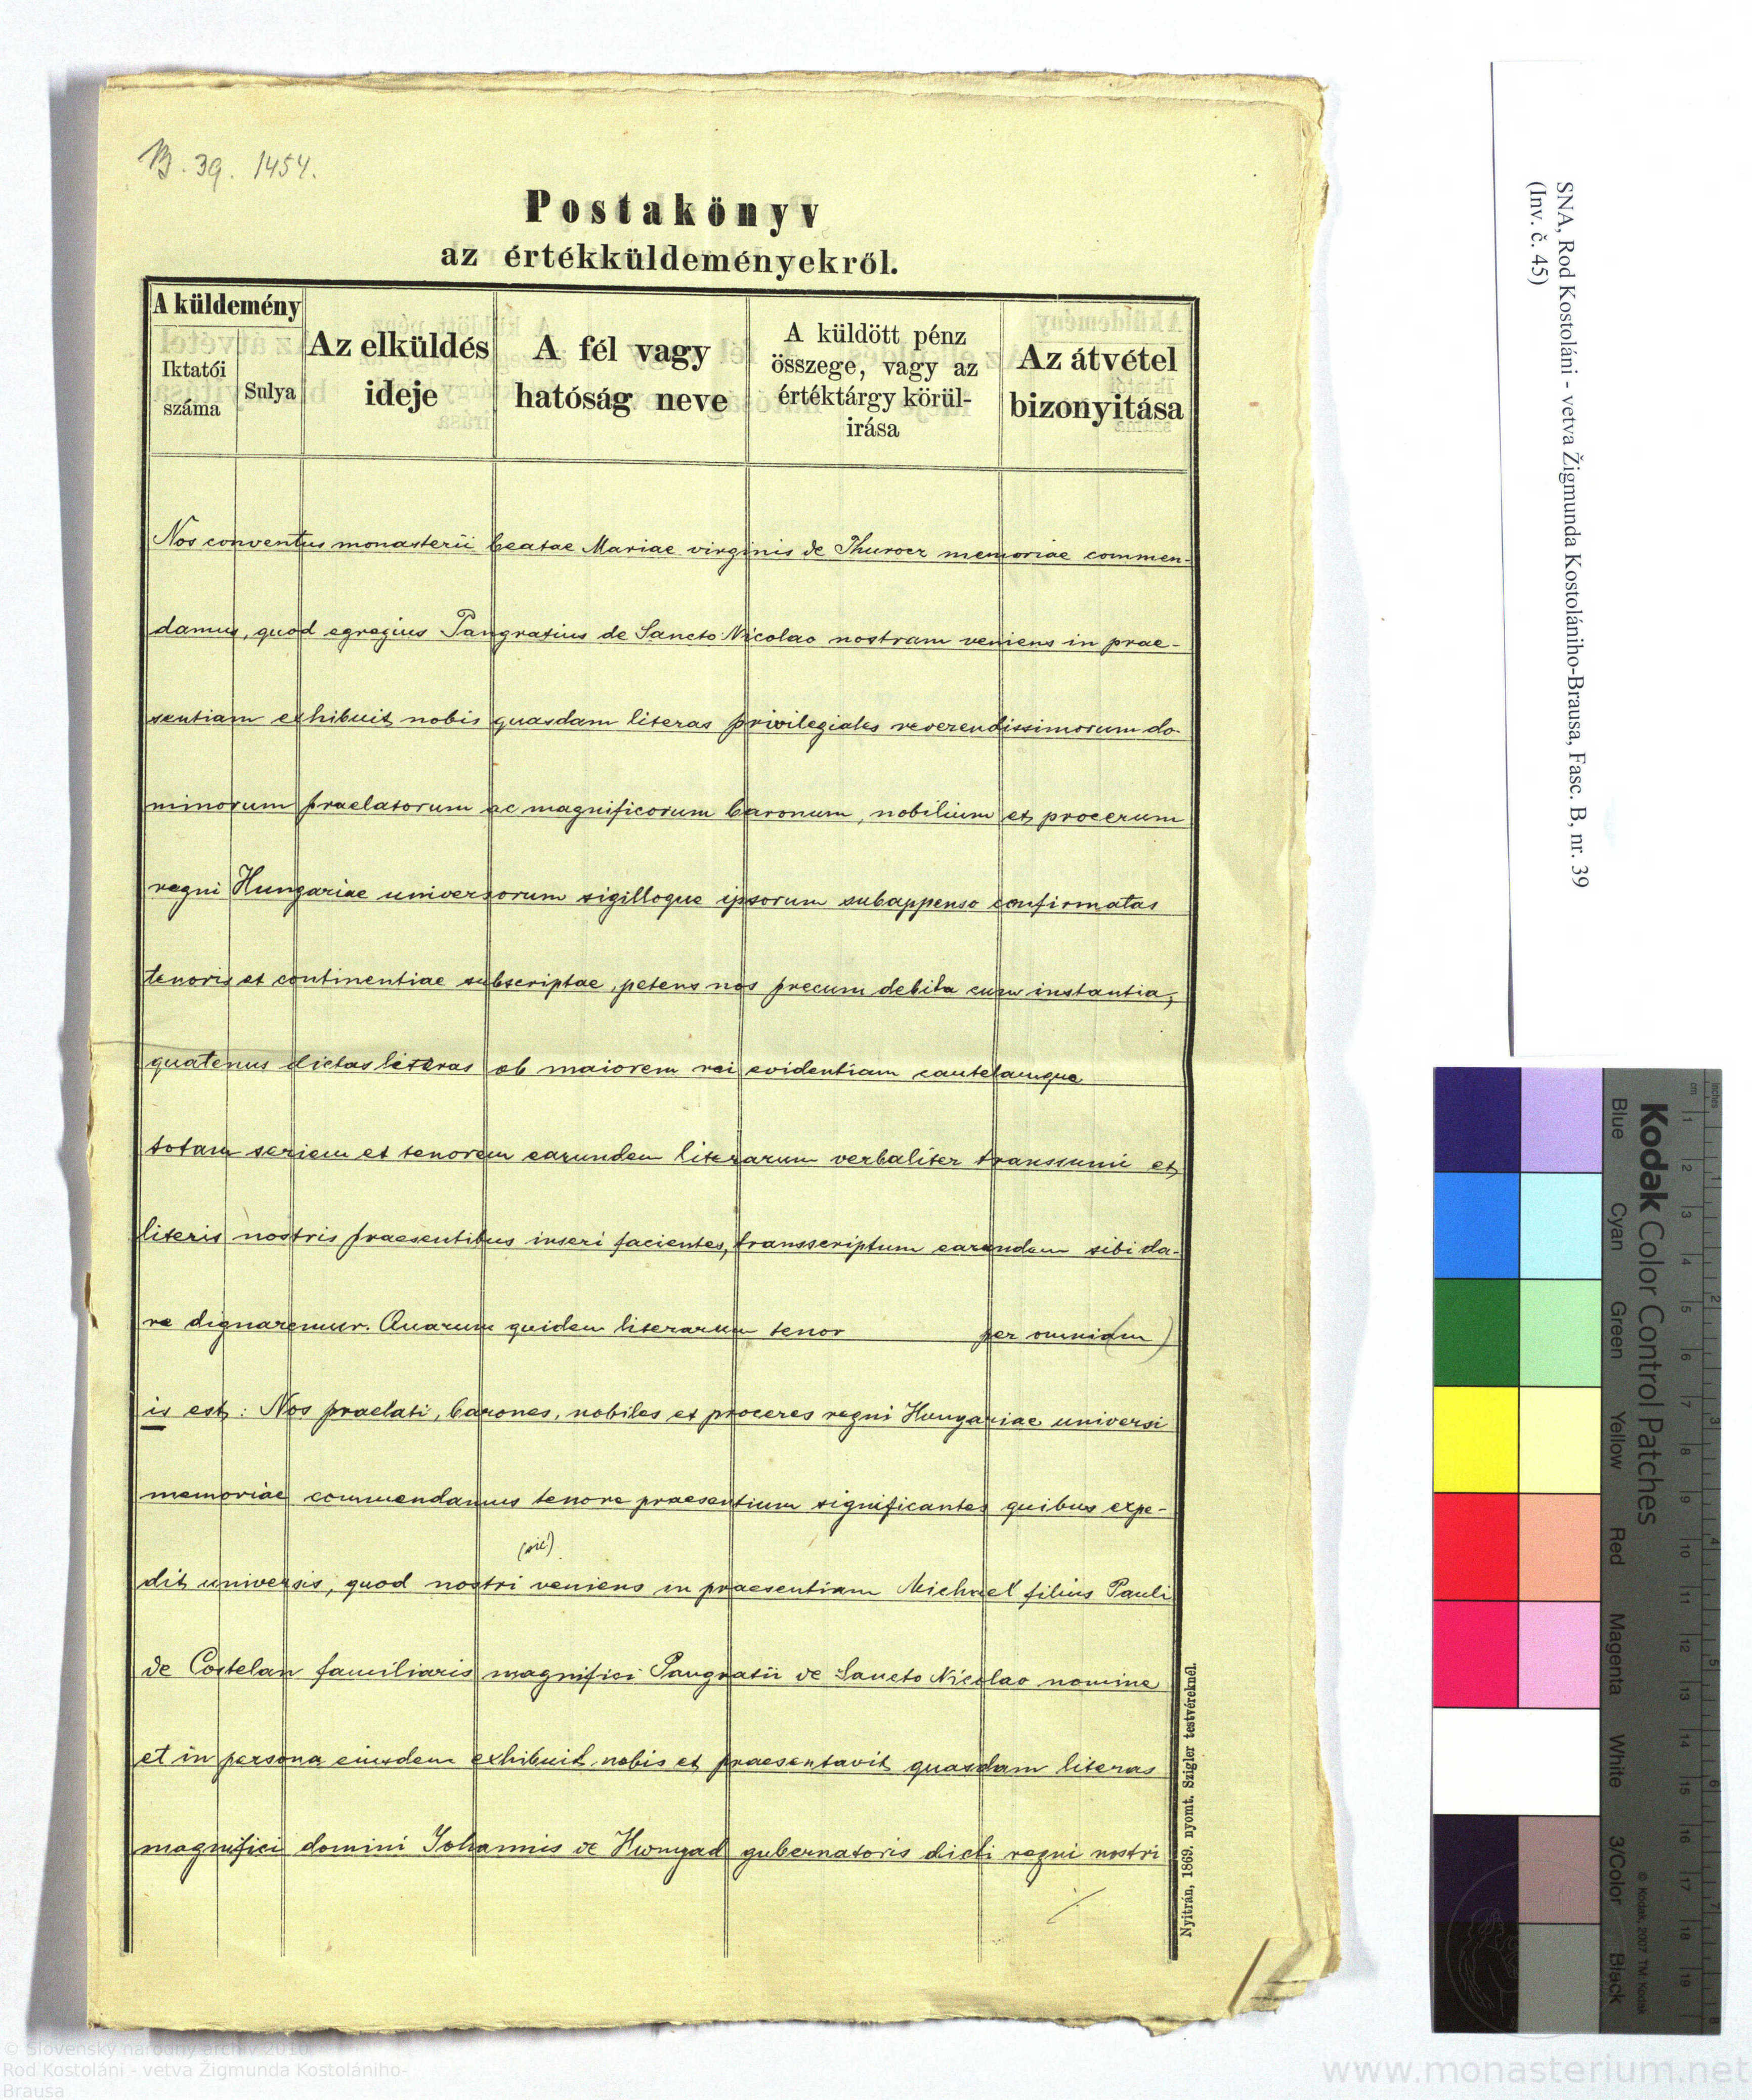 B. 39. 1454.
Postakönyv
az értékküldeményekről.
A küldemény
Iktatói száma
Sulya
Az elküldés ideje
A fél vagy hatóság neve
A küldött pénz összege, vagy az értéktárgy körül-irása
Az átvétel bizonyitása
Nos conventus monasterii beatae Mariae virginis de Thurocz memoriae commen-
damus, quod egregius Pangratius de Sancto Nicolao nostram veniens in prae-
sentiam exhibuit nobis quasdam literas privilegiales reverendissimorum do-
minorum praelatorum ac magnificorum baronum, nobilium et procerum
regni Hungariae universorum sigilloque ipsorum subappenso confirmatas
tenoris et continentiae subscriptae, petens nos precum debita cum instantia,
quatenus dictas literas ob maiorem rei evidentiam cautelamque
totam seriem et tenorem earundem literarum verbaliter transsumi et
literis nostris praesentibus inseri facientes, transscriptum earundem sibi da-
re dignaremur. Quarum quidem literarum tenor per omnia(m)
is est: Nos praelati, barones, nobiles et proceres regni Hungariae universi
memoriae commendamus tenore praesentium significantes quibus expe-
(sic)
dit universis, quod nostri veniens in praesentiam Michael filius Pauli
de Costelan familiaris magnifici Pangratii de Sancto Nicolao nomine
et in persona eiusdem exhibuit nobis et praesentavit quasdam literas
magnifici domini Johannis de Hwnyad gubernatoris dicti regni nostri
Nyitrán, 1869. nyomt. Szigler testvéreknél.
SNA, Rod Kostoláni - vetva Žigmunda Kostolániho-Brausa, Fasc. B, nr. 39
(Inv. č. 45)
Kodak Color Control Patches
Blue Cyan Green Yellow Red Magenta White 3/Color Black
© Kodak, 2007 TM: Kodak
inches
cm
1 2 3 4 5 6 7 8 9 10 11 12 13 14 15 16 17 18 19
1 2 3 4 5 6 7 8
© Slovenský národný archív 2010
Rod Kostoláni - vetva Žigmunda Kostolániho-
Brausa
www.monasterium.net